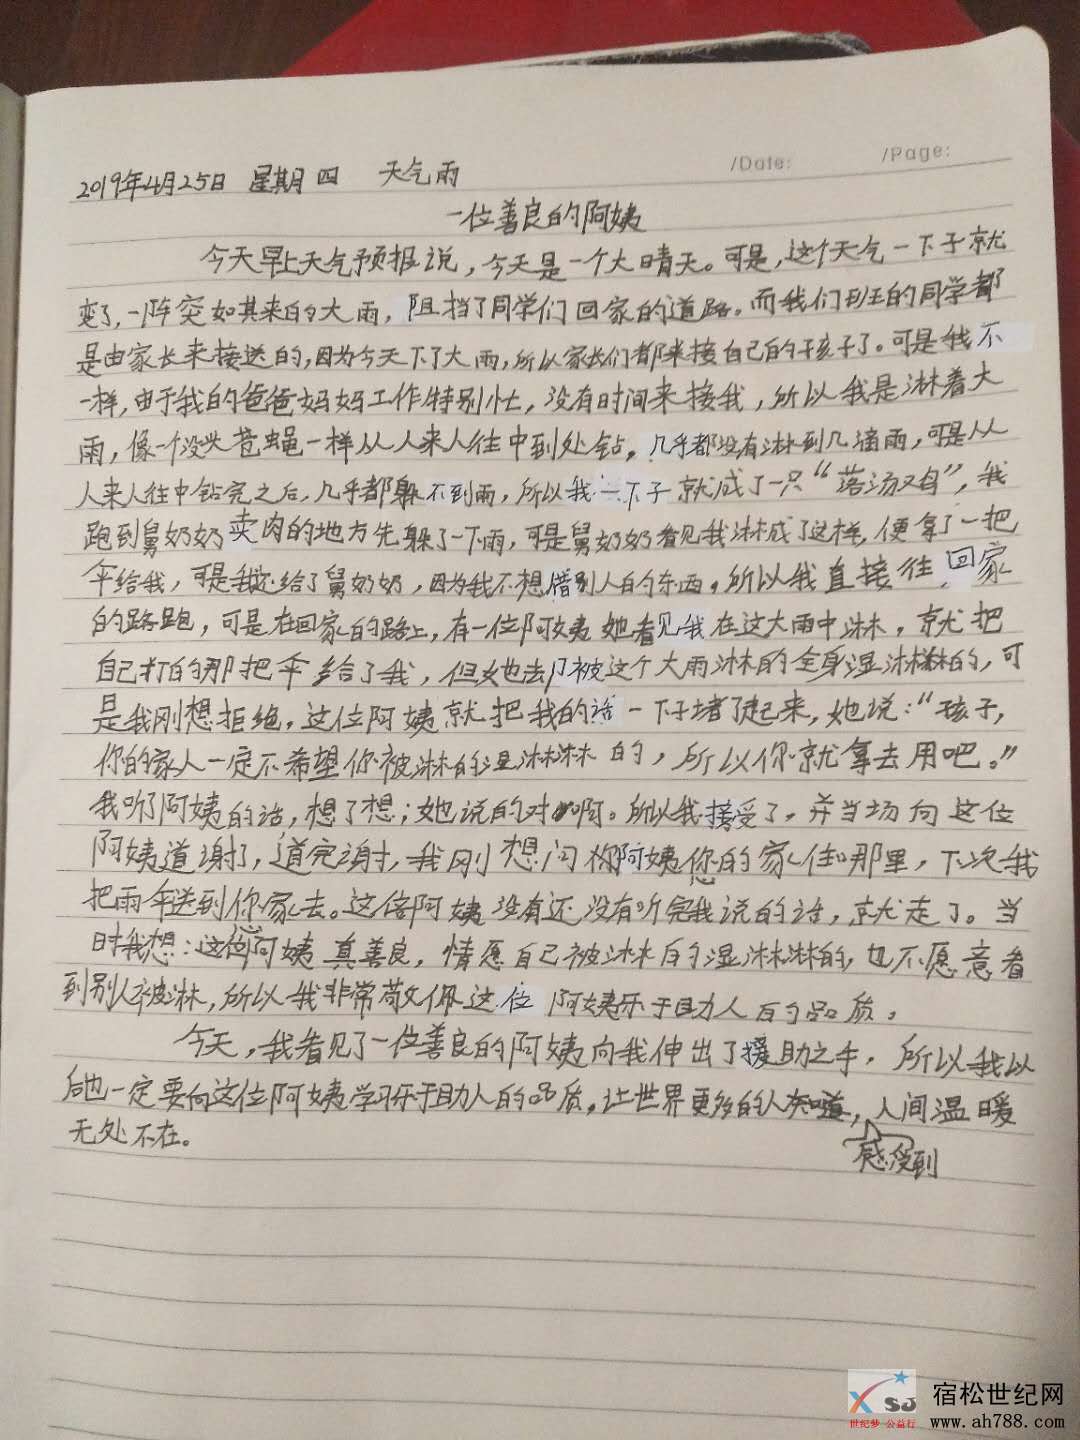 /Date: /Page:
2019年4月25日 星期四 天气雨
一位善良的阿姨
今天早上天气预报说，今天是一个大晴天。可是，这个天气一下子就
变了，一阵突如其来的大雨，阻挡了同学们回家的道路。而我们班的同学都
是由家长来接送的，因为今天下了大雨，所以家长们都来接自己的孩子了。可是我不
一样，由于我的爸爸妈妈工作特别忙，没有时间来接我，所以我是淋着大
雨，像一个没头苍蝇一样从人来人往中到处钻。几乎都没有淋到几滴雨，可是从
人来人往中钻完之后，几乎都躲不到雨，所以我一下子就成了一只“落汤鸡”，我
跑到舅奶奶卖肉的地方先躲了一下雨，可是舅奶奶看见我淋成了这样，便拿了一把
伞给我，可是我还给了舅奶奶，因为我不想借别人的东西。所以我直接往回家
的路跑，可是在回家的路上，有一位阿姨她看见我在这大雨中淋，就把
自己打的那把伞给了我，但她去被这个大雨淋的全身湿淋淋的，可
是我刚想拒绝，这位阿姨就把我的话一下子堵了起来，她说：“孩子，
你的家人一定不希望你被淋的湿淋淋的，所以你就拿去用吧。”
我听了阿姨的话，想了想；她说的对啊。所以我接受了，并当场向这位
阿姨道谢了，道完谢，我刚想问阿姨您的家住那里，下次我
把雨伞送到您家去。这位阿姨没有还没有听完我说的话，就走了。当
时我想：这位阿姨真善良，情愿自己被淋的湿淋淋的，也不愿意看
到别人被淋，所以我非常敬佩这位阿姨乐于助人的品质。
今天，我看见了一位善良的阿姨向我伸出了援助之手，所以我以
后也一定要向这位阿姨学习乐于助人的品质，让世界更多的人感受到，人间温暖
无处不在。
XSJ
世纪梦 公益行
宿松世纪网
www.ah788.com